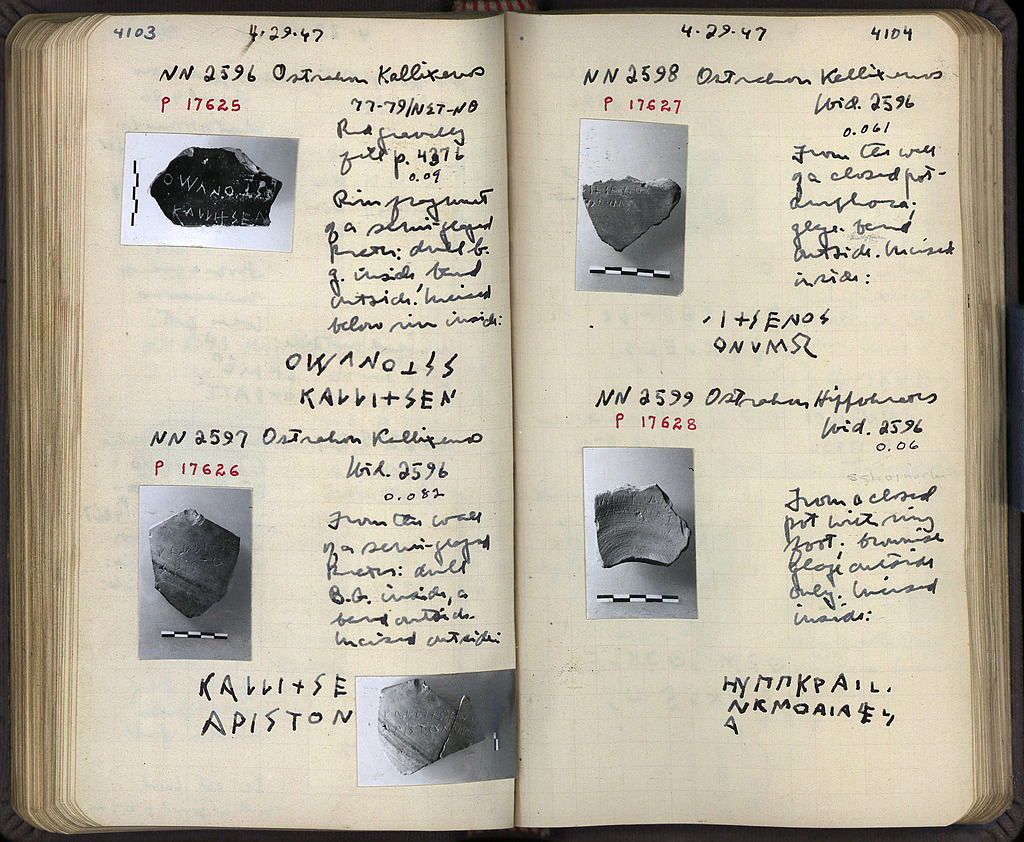 4103
4.29.47
NN 2596 Ostrakon Kallixenos
P 17625
77-79/ΝΣΤ-ΝΘ
Red gravelly
fill p. 4376
0.09
Rim fragment
of a semi-glazed
krater: dull b.
g. inside band
outside. Incised
below rim inside:
OWVNOTSS
KALLI+SEN
NN 2597 Ostrakon Kallixenos
P 17626
Ibid. 2596
0.082
From the wall
of a semi-glazed
krater: dull
B.G. inside, a
band outside.
Incised outside:
KALLI+SE
ARISTON
4.29.47
4104
NN 2598 Ostrakon Kallixenos
P 17627
Ibid. 2596
0.061
From the wall
of a closed pot-
amphora;
glaze band
outside. Incised
inside:
I+SENOS
ONVMΩ
NN 2599 Ostrakon Hippokrates
P 17628
Ibid. 2596
0.06
From a closed
pot with ring
foot. brownish
glaze outside
only. Incised
inside:
ΗΥΠΠΚΡΑΙL.
ΝΚΜΟΑΙΑ
Α